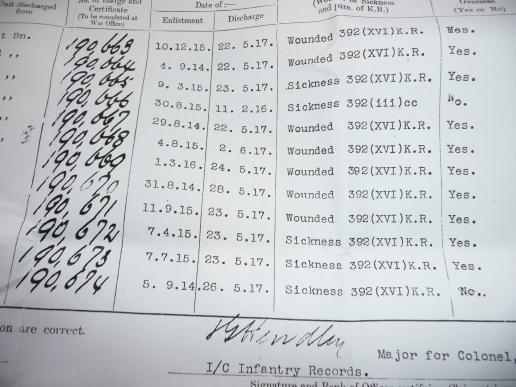 Unit discharged from
Certificate
(To be completed at War Office)
Date of :—
Enlistment Discharge
Sickness and para. of K.R.)
Overseas
(Yes or No)
Bn. 190,663 10.12.15. 22. 5.17. Wounded 392(XVI)K.R. Yes.
,, 190,664 4. 9.14. 22. 5.17. Wounded 392(XVI)K.R. Yes.
,, 190,665 9. 3.15. 23. 5.17. Sickness 392(XVI)K.R. Yes.
,, 190,666 30.8.15. 11. 2.16. Sickness 392(111)cc No.
,, 190,667 29.8.14. 22. 5.17. Wounded 392(XVI)K.R. Yes.
190,668 4.8.15. 2. 6.17. Wounded 392(XVI)K.R. Yes.
190,669 1.3.16. 24. 5.17. Wounded 392(XVI)K.R. Yes.
190,670 31.8.14. 28. 5.17. Wounded 392(XVI)K.R. Yes.
190,671 11.9.15. 23. 5.17. Wounded 392(XVI)K.R. Yes.
190,672 7.4.15. 23. 5.17. Sickness 392(XVI)K.R. Yes.
190,673 7.7.15. 23. 5.17. Sickness 392(XVI)K.R. Yes.
190,674 5. 9.14. 26. 5.17. Sickness 392(XVI)K.R. No..
on are correct.
Handley
Major for Colonel,
I/C Infantry Records.